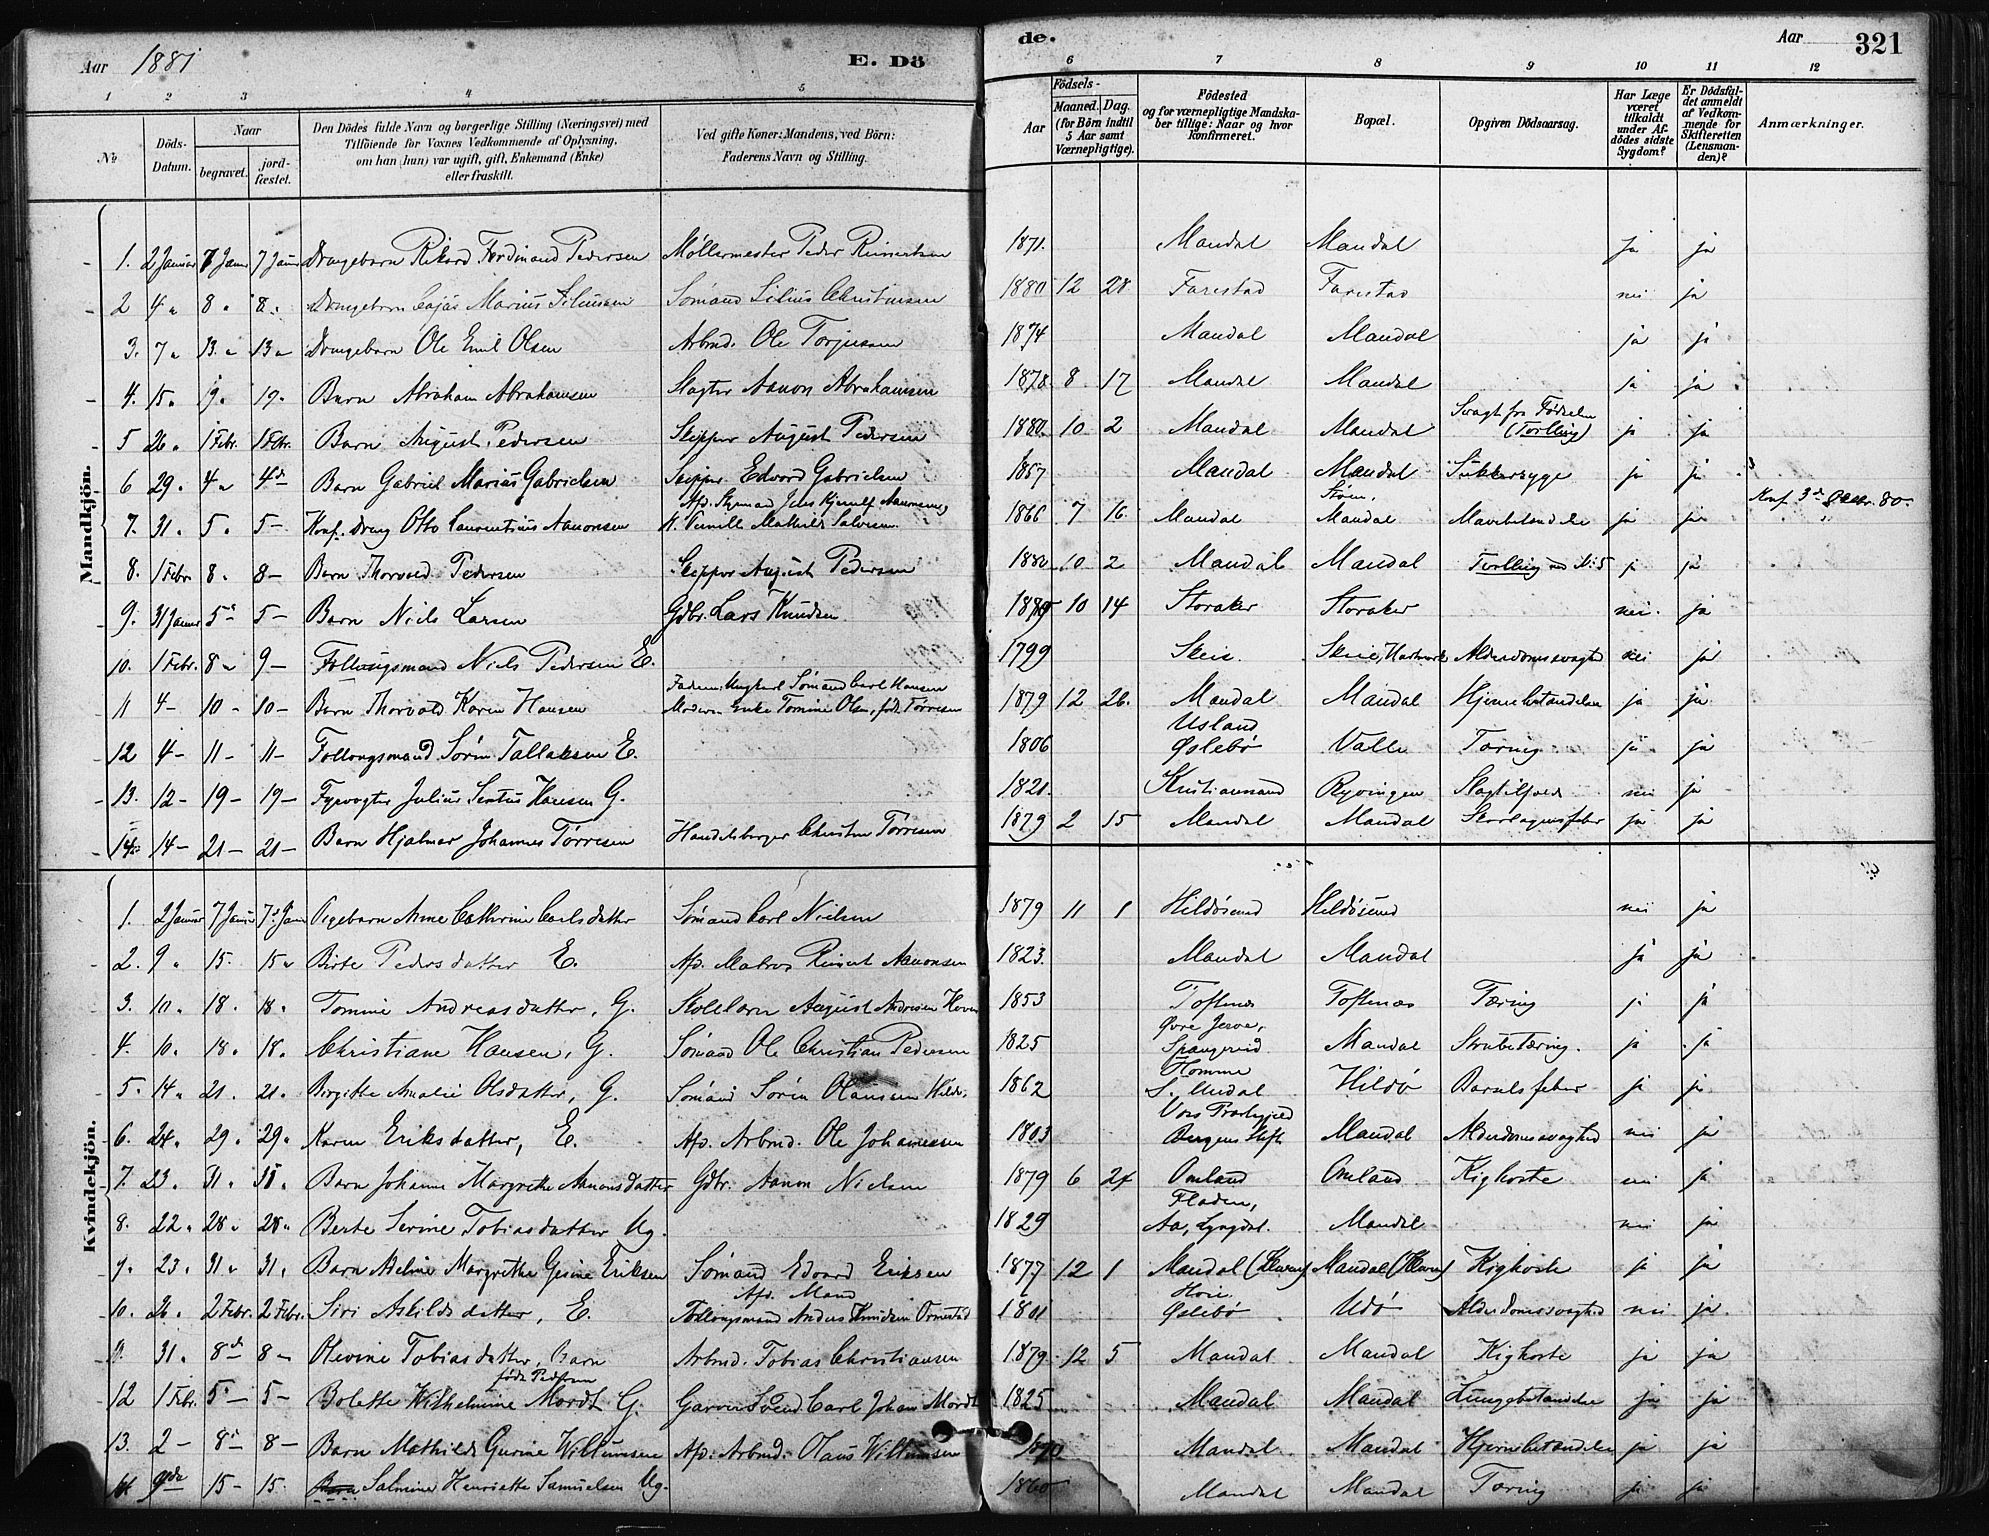 Aar 1881 E. Dö
de. Aar 321
1 2 3 4 5 6 7 8 9 10 11 12
No
Döds-Datum.
Naar
begravet. jordfæstet.
Den Dödes fulde Navn og borgerlige Stilling (Næringsvei) med
Tilföiende for Voxnes Vedkommende af Oplysning,
om han (hun) var ugift, gift, Enkemand (Enke)
eller fraskilt.
Ved gifte Koner: Mandens, ved Börn:
Faderens Navn og Stilling.
Födsels-
Aar Maaned. Dag.
(for Börn indtil
5 Aar samt
Værnepligtige).
Födested
og for værnepligtige Mandskaber tillige: Naar og hvor
konfirmeret.
Bopæl.
Opgiven Dödsaarsag.
Har Læge
været
tilkaldt
under Afdödes sidste
Sygdom?
Er Dödsfaldet anmeldt
af Vedkommende for
Skifteretten
(Lensmanden)?
Anmærkninger.
Mandkjön.
1. 2 Januar 7 Janr 7 Janr Drengebarn Rikard Ferdinand Pedersen Møllermester Peder Reinertsen 1871. Mandal Mandal ja ja
2 4 " 8 " 8 " Drengebarn Marius Siliusen Sømand Silius Christensen 1880 12 28 Farestad Farestad nei ja
3. 7 " 13. " 13 " Drengebarn Ole Emil Olsen Arbmd. Ole Torjusen 1874 Mandal Mandal ja ja
4. 15 " 19 " 19 " Barn Abraham Abrahamsen Slagter Aanon Abrahamsen 1878 8 17 Mandal Mandal ja ja
5 26 " 1 Febr. 1 Febr. Barn August Pedersen Skipper August Pedersen 1880. 10 2 Mandal Mandal Svagt fra Fødselen (Tvilling) ja ja
6 29 " 4 " 4 d– Barn Gabriel Marius Gabrielsen Skipper Edvard Gabrielsen 1867 Mandal Mandal Sukkersyge ja ja
7. 31 " 5 " 5 – Konf. Dreng Otto Laurentius Aanonsen Afd. Styrmand Jens Aanonsen, Mathilde Salvesen 1866 7 16 Mandal Mandal ja ja Konf. 3 80.
8. 1 Febr. 8 " 8 – Barn Thorvald Pedersen Skipper August Pedersen 1880 10 2 Mandal Mandal Tvilling ja ja
9. 31 Januar 5 5 – Barn Niels Larsen Gdbr. Lars Knudsen 10 14 Storaker Storaker nei. ja
10. 1 Febr. 8 " 9 – Føllougsmand Niels Pedersen E. 1799 Skeie. Skeie, Alderdomssvaghed nei ja
11 4 – 10 – 10 – Barn Thorvald Karin Hansen Faderen: Ungkarl Sømand Carl Hansen Moderen Enke Tomine Olsen, født Tørresen 1879 12 26. Mandal Mandal Hjernebetændelse ja ja
12 4 – 11 – 11 – Føllougsmand Søren Tallaksen E. 1806 Usland Øslebø Valle Tæring ja ja
13. 12 – 19 – 19 – Fyrvogter Julius Sentus Hansen G. 1821. Kristianssand Ryvingen Slagtilfælde nei ja
14. 14 – 21 – 21 – Barn Hjalmar Johannes Tørresen Handelsborger Christen Tørresen 1879 2 15 Mandal Mandal Skarlagensfeber ja ja
Kvindekjön.
1. 2 Januar 7 Januar 7 Janr Pigebarn Anne Cathrine Carlsdatter Sømand Carl Nielsen 1879 11 1 Hildøsund Hildøsund nei ja
2. 9 " 15. 15 " Birte Pedersdatter E. Afd. Matros Reinert Aanonsen 1823. Mandal Mandal ja ja
3. 10 " 18 " 18 " Tomine Andreasdatter, G. August Andresen 1853 Toftenes Toftenes Tæring ja ja
4. 10 " 18 " 18 " Christiane Hansen, G. Sømand Ole Christian Pedersen 1825 Øvre Jerve, Spangereid Mandal Strubetæring. ja ja
5 " 14 " 21. 21 " Birgitte Amalie Olsdatter, G. Sømand Søren Olausen Hildø 1862 Homme S. Undal Hildø Barselsfeber ja ja
6. 24 " 29 " 29 " Karen Eriksdatter, E. Afd. Arbmd. Ole Johannessen 1803 Vors Præstegjeld Bergens Stift Mandal Alderdomssvaghed nei ja
7. 23 " 31 " 31 " Barn Johanne Margrethe Aanonsdatter Gdbr. Aanon Nielsen 1879 6 24 Omland Omland Kighoste nei ja
8. 22 " 28 " 28 " Berte Serine Tobiasdatter Ug. 1829 Fladen, Aa, Lyngdal. Mandal nei ja
9 " 23 " 31 " 31 " Barn Adeline Margrethe Gesine Eriksen Sømand Edvard Eriksen 1877 12 1 Mandal Mandal Kighoste ja ja
10. 26 " 2 Febr. 2 Febr. Siri Askildsdatter, E. Afd. Mand Føllougsmand Anders Knudsen Ormestad 1801 Øslebø Udø Alderdomssvaghed nei ja
31 " 8 d– 8 – Olevine Tobiasdatter, Barn Arbmd. Tobias Christiansen 1879 12 5 Mandal Mandal Kighoste ja ja
12 1 Febr. 5 – 5 – Bolette Wilhelmine Mordt G. Garversvend Carl Johan Mordt 1825 Mandal Mandal Lungebetændelse ja ja
13. 2 – 8 d– 8 – Barn Mathilde Gurine Willumsen Afd. Arbmd. Olaus Willumsen Mandal Mandal Hjernebetændelse ja ja
9 de 15 – 15. Salmine Henriette Samuelsen Ug. 1860 Mandal Mandal Tæring ja ja